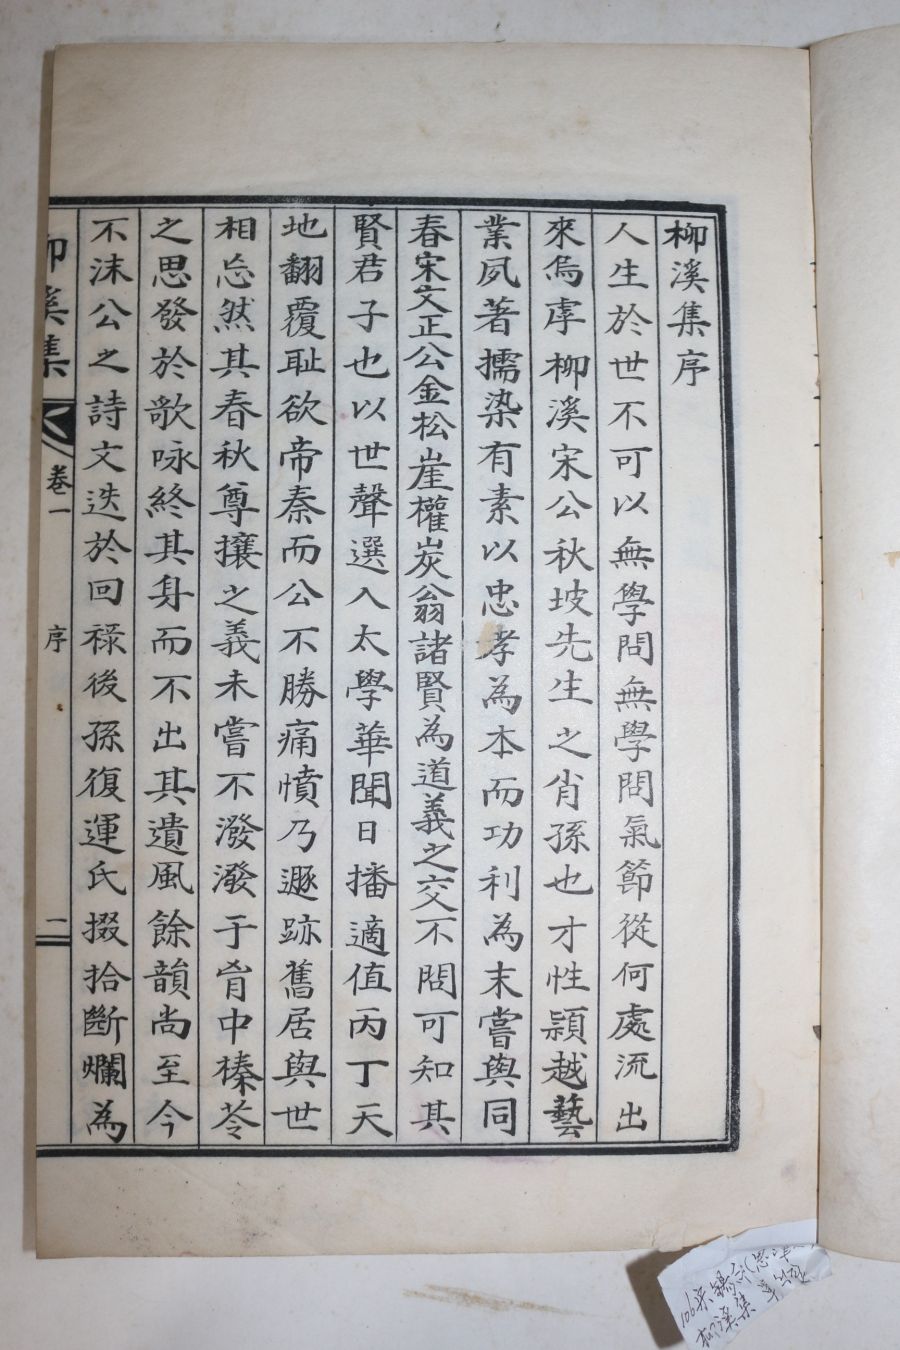 柳溪集序
人生於世不可以無學問無學問氣節從何處流出
來烏虖柳溪宋公秋坡先生之肖孫也才性穎越藝
業夙著擩染有素以忠孝為本而功利為末嘗與同
春宋文正公金松崖權炭翁諸賢為道義之交不問可知其
賢君子也以世聲選入太學華聞日播適值丙丁天
地翻覆耻欲帝秦而公不勝痛憤乃遯跡舊居與世
相忘然其春秋尊攘之義未嘗不潑潑于胷中榛苓
之思發於歌咏終其身而不出其遺風餘韻尚至今
不沫公之詩文迭於回祿後孫復運氏掇拾斷爛為
柳溪集
卷一
序
一
柳溪集